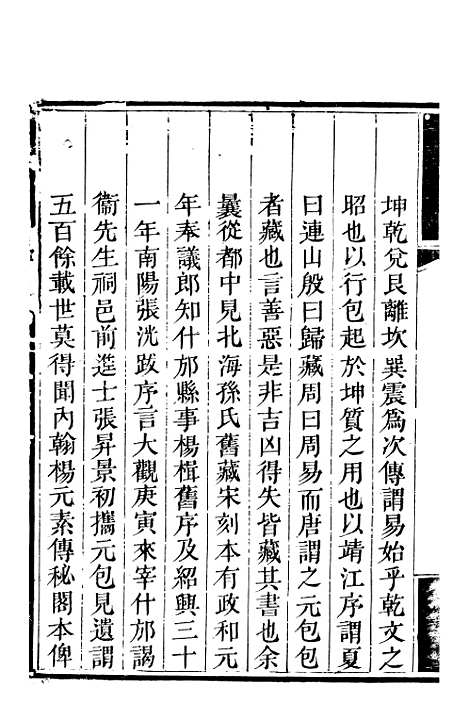 坤乾兌艮離坎巽震爲次傳謂易始乎乾文之
昭也以行包起於坤質之用也以靖江序謂夏
曰連山殷曰歸藏周曰周易而唐謂之元包包
者藏也言善惡是非吉凶得失皆藏其書也余
曩從都中見北海孫氏舊藏宋刻本有政和元
年奉議郎知什邡縣事楊楫舊序及紹興三十
一年南陽張洸跋序言大觀庚寅來宰什邡謁
衞先生祠邑前進士張昇景初攜元包見遺謂
五百餘載世莫得聞內翰楊元素傳秘閣本俾